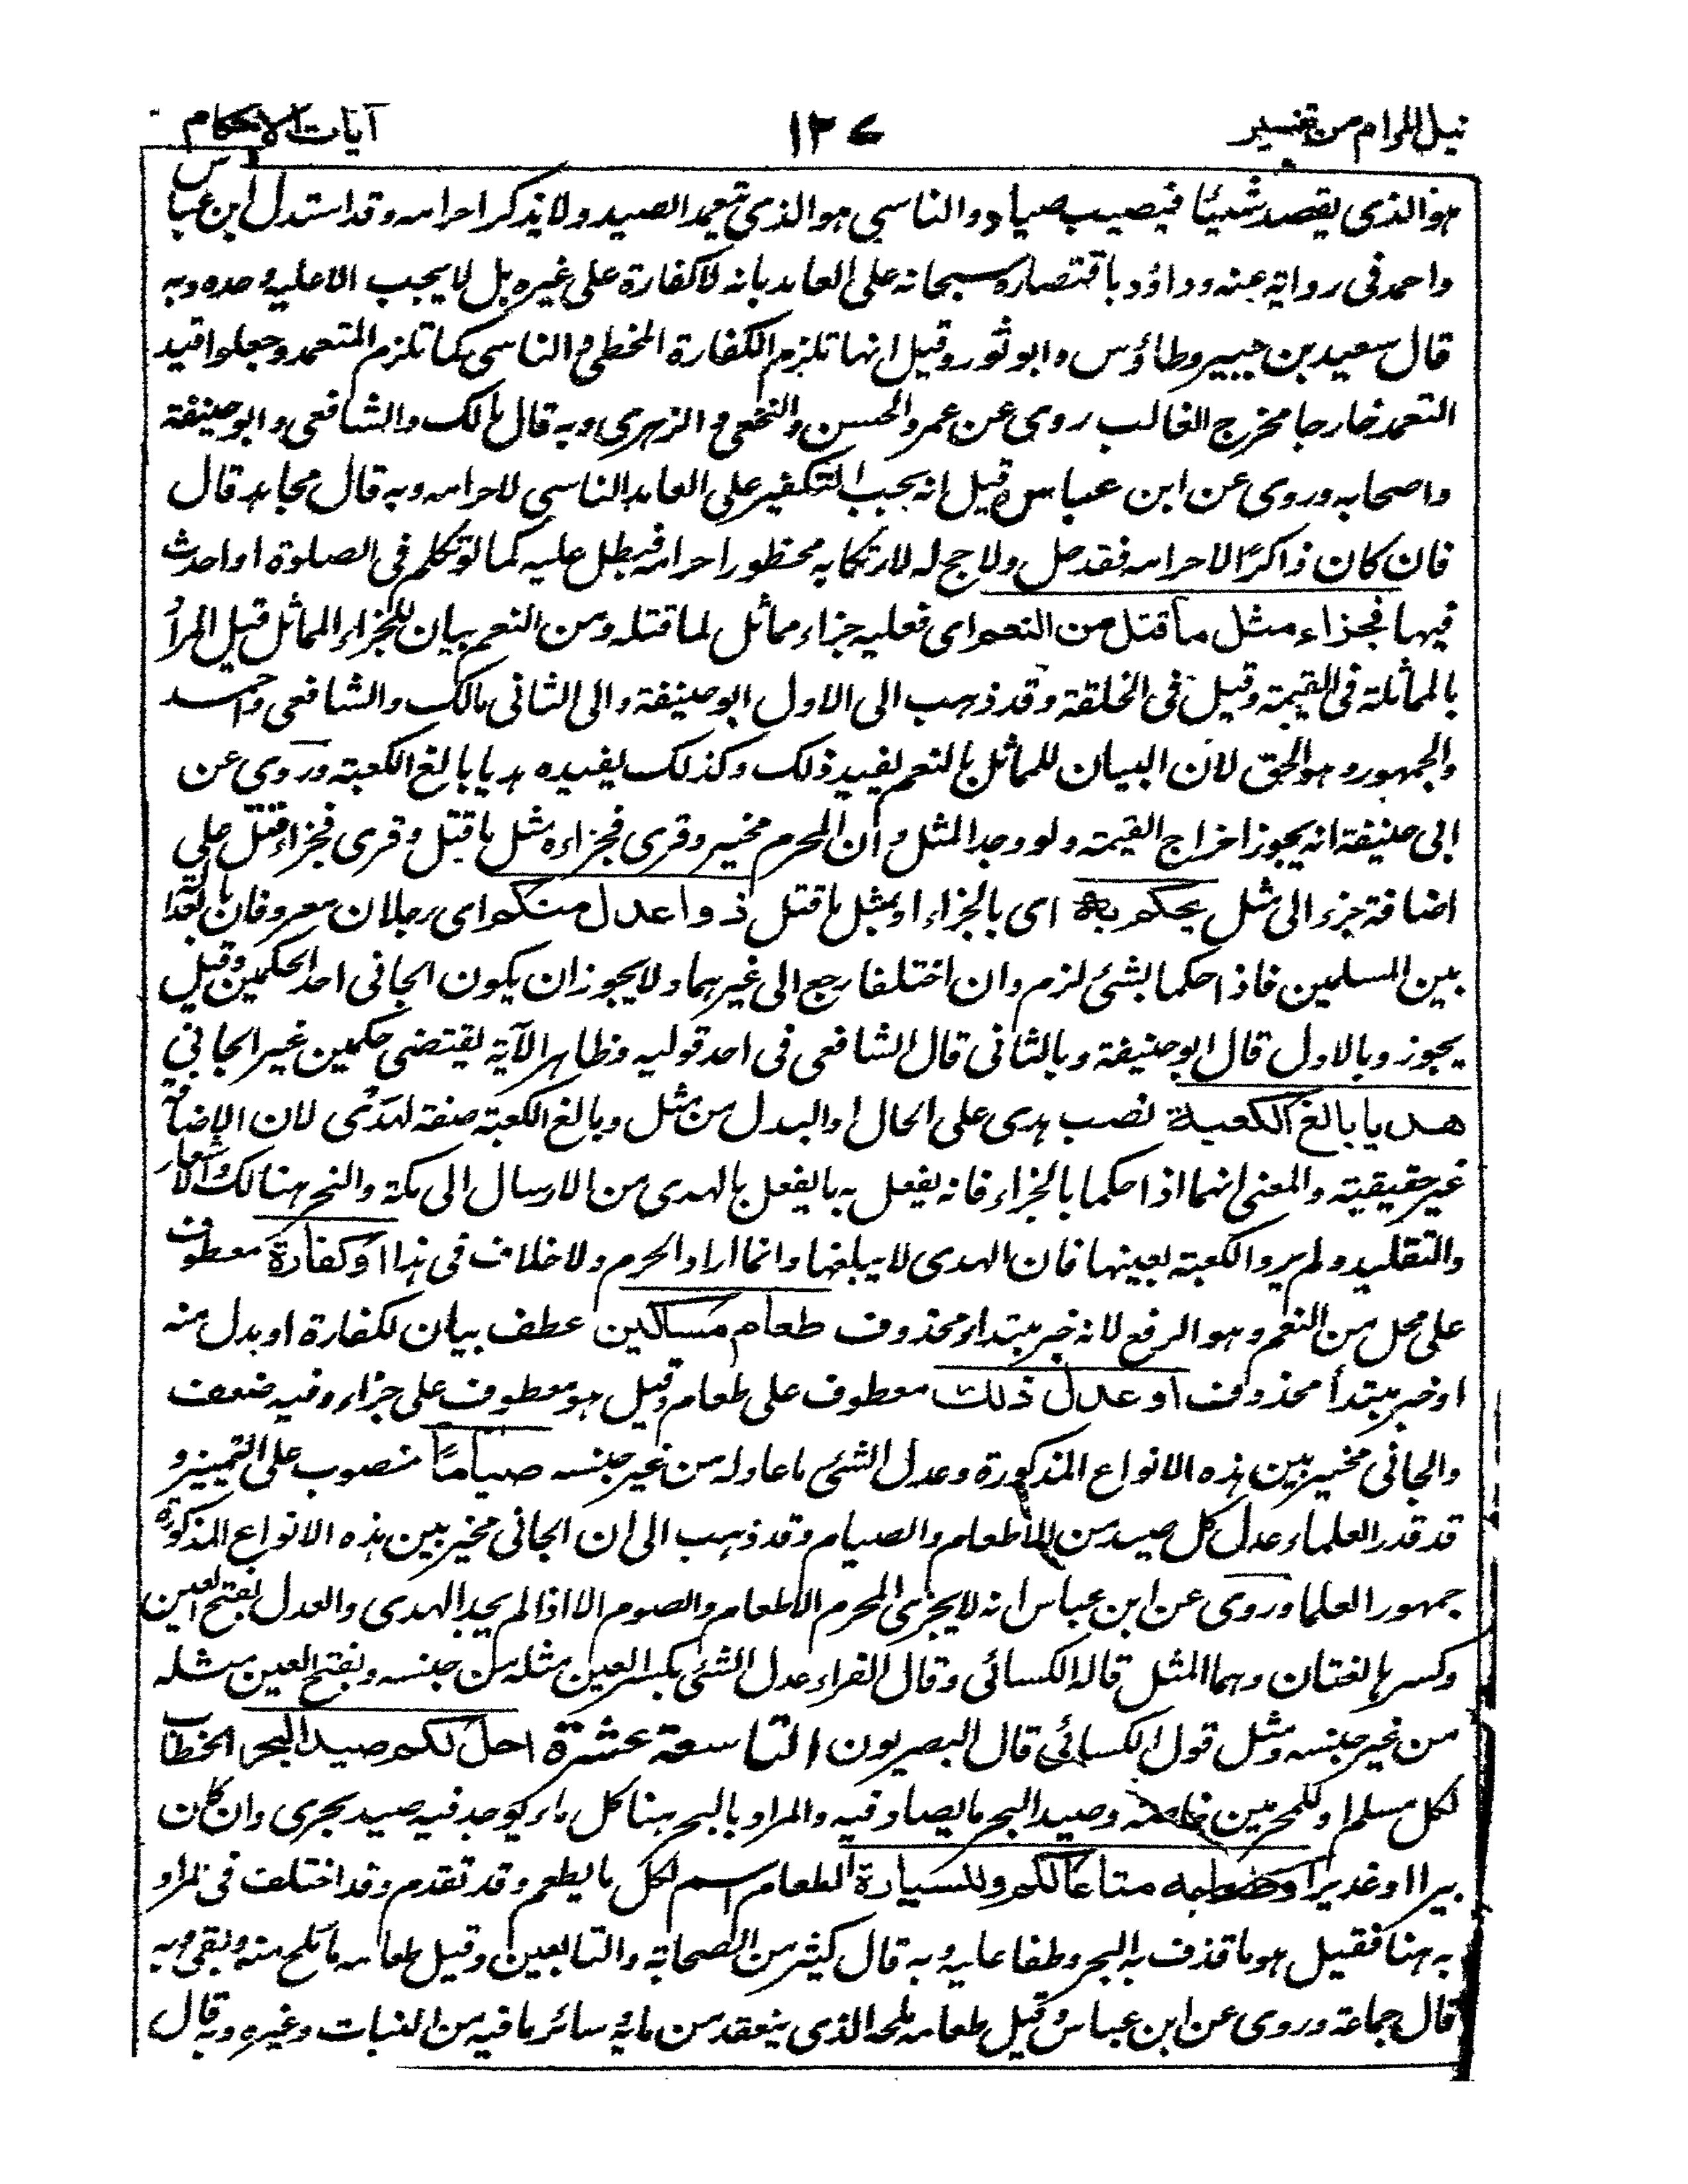 نيل المرام من تفسير ١٢٧ آيات الاحكام
هو الذى يقصد شيئا فيصيب صيدا والناسي هو الذى يتعمد الصيد ولا يذكر احرامه وقد استدل ابن عباس
واحمد فى رواية عنه وداؤد باقتصاره سبحانه على العامد بانه لا كفارة على غيره بل لا يجب الا عليه وحده وبه
قال سعيد بن جبير وطاؤس وابو ثور وقيل انها تلزم الكفارة المخطي والناسي كما تلزم المتعمد وجعلوا قيد
التعمد خارجا مخرج الغالب روى عن عمر والحسن والنخعي والزهري وبه قال مالك والشافعي وابو حنيفة
واصحابه وروى عن ابن عباس وقيل انه يجب التكفير على العامد الناسي لاحرامه وبه قال مجاهد قال
فان كان ذاكرًا لاحرامه فقد حل ولا حج له لارتكابه محظور احرامه فبطل عليه كما لو تكلم فى الصلوة او احدث
فيها فجزاء مثل ما قتل من النعم اى فعليه جزاء مماثل لما قتله ومن النعم بيان للجزاء المماثل قيل المراد
بالمماثلة فى القيمة وقيل فى الخلقة وقد ذهب الى الاول ابو حنيفة والى الثانى مالك والشافعي واحمد
والجمهور وهو الحق لان البيان للمماثل بالنعم يفيد ذلك وكذلك يفيده هديا بالغ الكعبة وروى عن
ابى حنيفة انه يجوز اخراج القيمة ولو وجد المثل وان المحرم مخير وقرى فجزاءه مثل ما قتل وقرى فجزاء قتل على
اضافة جزء الى مثل يحكم به اى بالجزاء او بمثل ما قتل ذوا عدل منكم اى رجلان معروفان بالعدالة
بين المسلمين فاذا حكما بشئ لزم وان اختلفا رجع الى غيرهما ولا يجوز ان يكون الجانى احد الحكمين وقيل
يجوز وبالاول قال ابو حنيفة وبالثانى قال الشافعي فى احد قوليه وظاهر الآية يقتضى حكمين غير الجاني
هديا بالغ الكعبة نصب هدى على الحال او البدل من مثل وبالغ الكعبة صفة لهدى لان الاضافة
غير حقيقية والمعنى انهما اذا حكما بالجزاء فانه يفعل به ما يفعل بالهدى من الارسال الى مكة والنحر هنالك والاشعار
والتقليد ولم يرد الكعبة بعينها فان الهدى لا يبلغها وانما اراد الحرم ولا خلاف فى هذا او كفارة معطوف
على محل من النعم وهو الرفع لانه خبر مبتداء محذوف طعام مساكين عطف بيان لكفارة او بدل منه
او خبر مبتدأ محذوف او عدل ذلك معطوف على طعام وقيل هو معطوف على جزاء وفيه ضعف
والجانى مخير بين هذه الانواع المذكورة وعدل الشئ ما عادله من غير جنسه صياما منصوب على التمييز و
قد قدر العلماء عدل كل صيد من الاطعام والصيام وقد ذهب الى ان الجانى مخير بين هذه الانواع المذكورة
جمهور العلما وروى عن ابن عباس انه لا يجزئ المحرم الاطعام والصوم الا اذا لم يجد الهدى والعدل بفتح العين
وكسرها لغتان وهما المثل قاله الكسائى وقال الفراء عدل الشئ بكسر العين مثله من جنسه وبفتح العين مثله
من غير جنسه ومثل قول الكسائى قال البصريون التاسعة عشرة احل لكم صيد البحر الخطاب
لكل مسلم او للمحرمين خاصة وصيد البحر ما يصاد فيه والمراد بالبحر هنا كل ماء يوجد فيه صيد بحرى وان كان
بيرا او غديرا وطعامه متاعا لكم وللسيارة الطعام اسم لكل ما يطعم وقد تقدم وقد اختلف فى المراد
به هنا فقيل هو ما قذف به البحر وطفا عليه وبه قال كثير من الصحابة والتابعين وقيل طعامه ما ملح منه وبقى وبه
قال جماعة وروى عن ابن عباس وقيل طعامه ملحه الذى ينعقد من مائه سائر ما فيه من النبات وغيره وبه قال